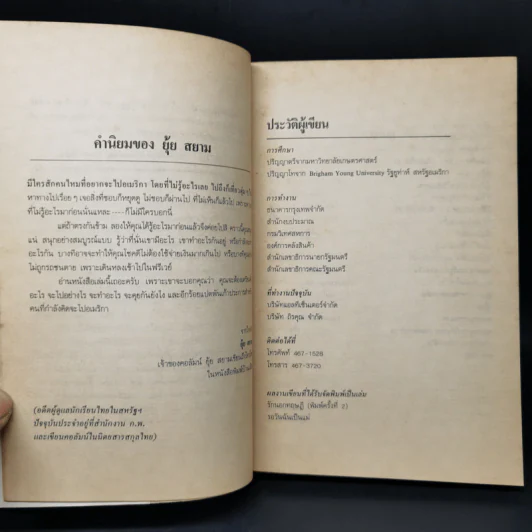 คำนิยมของ ยุ้ย สยาม
มีใครสักคนไหมที่อยากจะไปอเมริกา โดยที่ไม่รู้อะไรเลย ไปถึงก็
หาทางไปเรื่อยๆ เจอสิ่งที่ชอบก็หยุดดู ไม่ชอบก็ผ่านไป ที่ไม่เห็นก็แล้วไป
ที่ไม่รู้อะไรมาก่อนนั่นแหละ ก็ไม่มีใครบอกนี่
แต่ถ้าตรงกันข้าม ลองให้คุณได้รู้อะไรมาก่อนแล้วจึงค่อยไปสิ คราวนี้คุณจะ
แน่ สนุกอย่างสมบูรณ์แบบ รู้ว่าที่นั่นเขามีอะไร เขาทำอะไรกันอยู่
อะไรกัน บางทีอาจจะทำให้คุณโชคดีไม่ต้องใช้จ่ายเงินมากเกินไป
ไม่ถูกรถชนตาย เพราะเดินหลงเข้าไปในฟรีเวย์
อ่านหนังสือเล่มนี้เถอะครับ เพราะเขาจะบอกคุณว่า คุณจะต้องเตรียม
อะไร จะไปอย่างไร จะทำอะไร จะคุยกันยังไง และอีกร้อยแปดพันเก้าประการ
คนที่กำลังคิดจะไปอเมริกา
ยุ้ย
เจ้าของคอลัมน์ ยุ้ย สยาม
ในหนังสือพิมพ์
(อดีตผู้ดูแลนักเรียนไทยในสหรัฐฯ
ปัจจุบันประจำอยู่ที่สำนักงาน ก.พ.
และเขียนคอลัมน์ในนิตยสารสกุลไทย)
ประวัติผู้เขียน
การศึกษา
ปริญญาตรีจากมหาวิทยาลัยเกษตรศาสตร์
ปริญญาโทจาก Brigham Young University รัฐยูท่าห์ สหรัฐอเมริกา
การทำงาน
ธนาคารกรุงเทพจำกัด
สำนักงบประมาณ
กรมวิเทศสหการ
องค์การคลังสินค้า
สำนักเลขาธิการนายกรัฐมนตรี
สำนักเลขาธิการคณะรัฐมนตรี
ที่ทำงานปัจจุบัน
บริษัทแอลทีเซ็นเตอร์จำกัด
บริษัท ถิรคุณ จำกัด
ติดต่อได้ที่
โทรศัพท์ 467-1528
โทรสาร 467-3720
ผลงานเขียนที่ได้รับจัดพิมพ์เป็นเล่ม
รักนอกทฤษฎี (พิมพ์ครั้งที่ 2)
รอวันฉันเป็นแม่